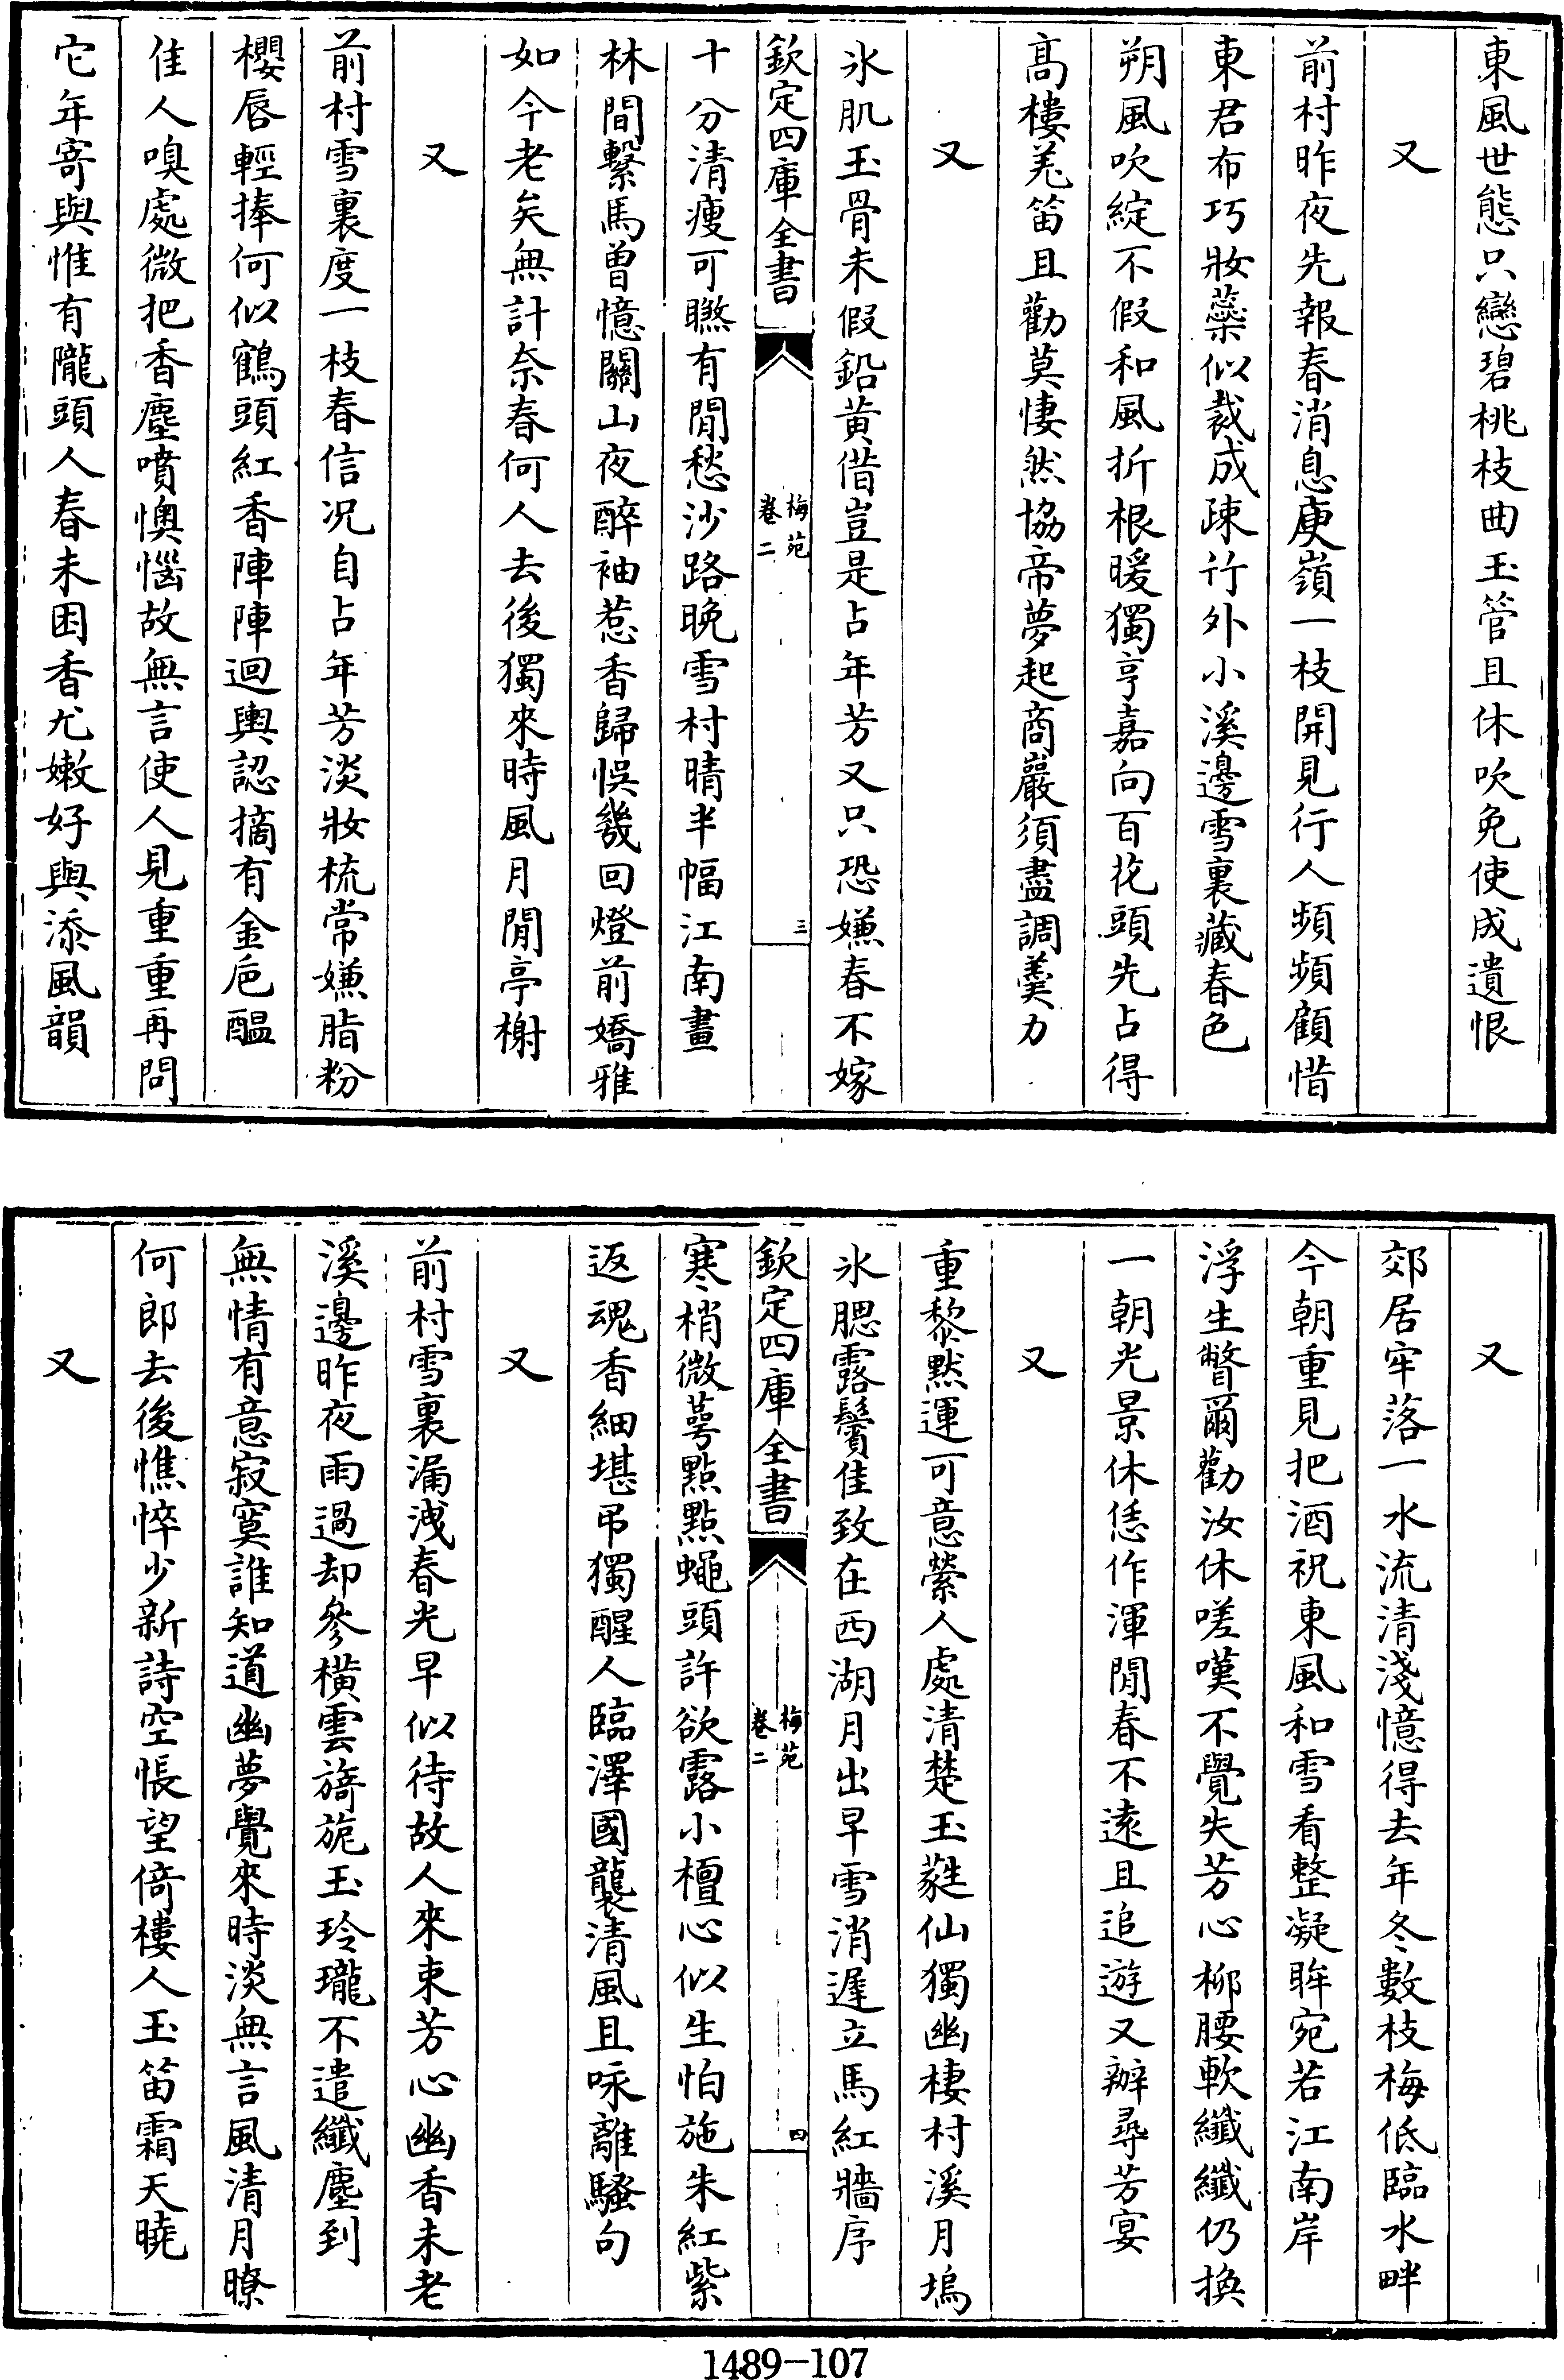 東風世態只戀碧桃枝曲玉管且休吹免使成遺恨
又
前村昨夜先報春消息庾嶺一枝開見行人頻頻顧惜
東君布巧妝蘂似裁成疎竹外小溪邊雪裏藏春色
朔風吹綻不假和風折根暖獨亨嘉向百花頭先占得
高樓羌笛且勸莫悽然協帝夢起商巖須盡調羹力
又
氷肌玉骨未假鉛黄借豈是占年芳又只恐嫌春不嫁
欽定四庫全書
梅苑
卷二
三
十分清瘦可㬠有閒愁沙路晚雪村晴半幅江南畫
林間繫馬曽憶關山夜醉袖惹香歸悞幾回燈前嬌雅
如今老矣無計奈春何人去後獨來時風月閒亭榭
又
前村雪裏度一枝春信况自占年芳淡妝梳常嫌脂粉
櫻唇輕捧何似鶴頭紅香陣陣迴輿認摘有金巵醖
佳人嗅處微把香塵噴懊惱故無言使人見重重再問
它年寄與惟有隴頭人春未困香尤嫩好與添風韻
又
郊居牢落一水流清淺憶得去年冬數枝梅低臨水畔
今朝重見把酒祝東風和雪看整凝眸宛若江南岸
浮生瞥爾勸汝休嗟嘆不覺失芳心柳腰軟纖纖仍換
一朝光景休恁作渾閒春不逺且追遊又辦尋芳宴
又
重黎黙運可意縈人處清楚玉蕤仙獨幽棲村溪月塢
氷腮露鬢佳致在西湖月出早雪消遲立馬紅牆序
欽定四庫全書
梅苑
卷二
四
寒梢微萼點點蠅頭許欲露小檀心似生怕施朱紅紫
返魂香細堪弔獨醒人臨澤國襲清風且咏離騷句
又
前村雪裏漏洩春光早似待故人來束芳心幽香未老
溪邊昨夜雨過却參橫雲旖旎玉玲瓏不遣纖塵到
無情有意寂寞誰知道幽夢覺來時淡無言風清月瞭
何郎去後憔悴少新詩空悵望倚樓人玉笛霜天曉
又
1489-107